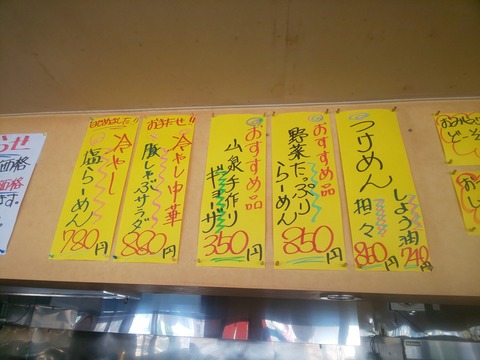 おみやげ
どうぞ
つけめん
しょう油
740円
担々
860円
おすすめ品
野菜たっぷり
らーめん
850円
おすすめ品
山泉手作り
ギョーザ
350円
おまたせ!!
冷やし中華
豚しゃぶサラダ
880円
はじめました!!
冷やし
塩らーめん
780円
らせ
価格
価格
ます。